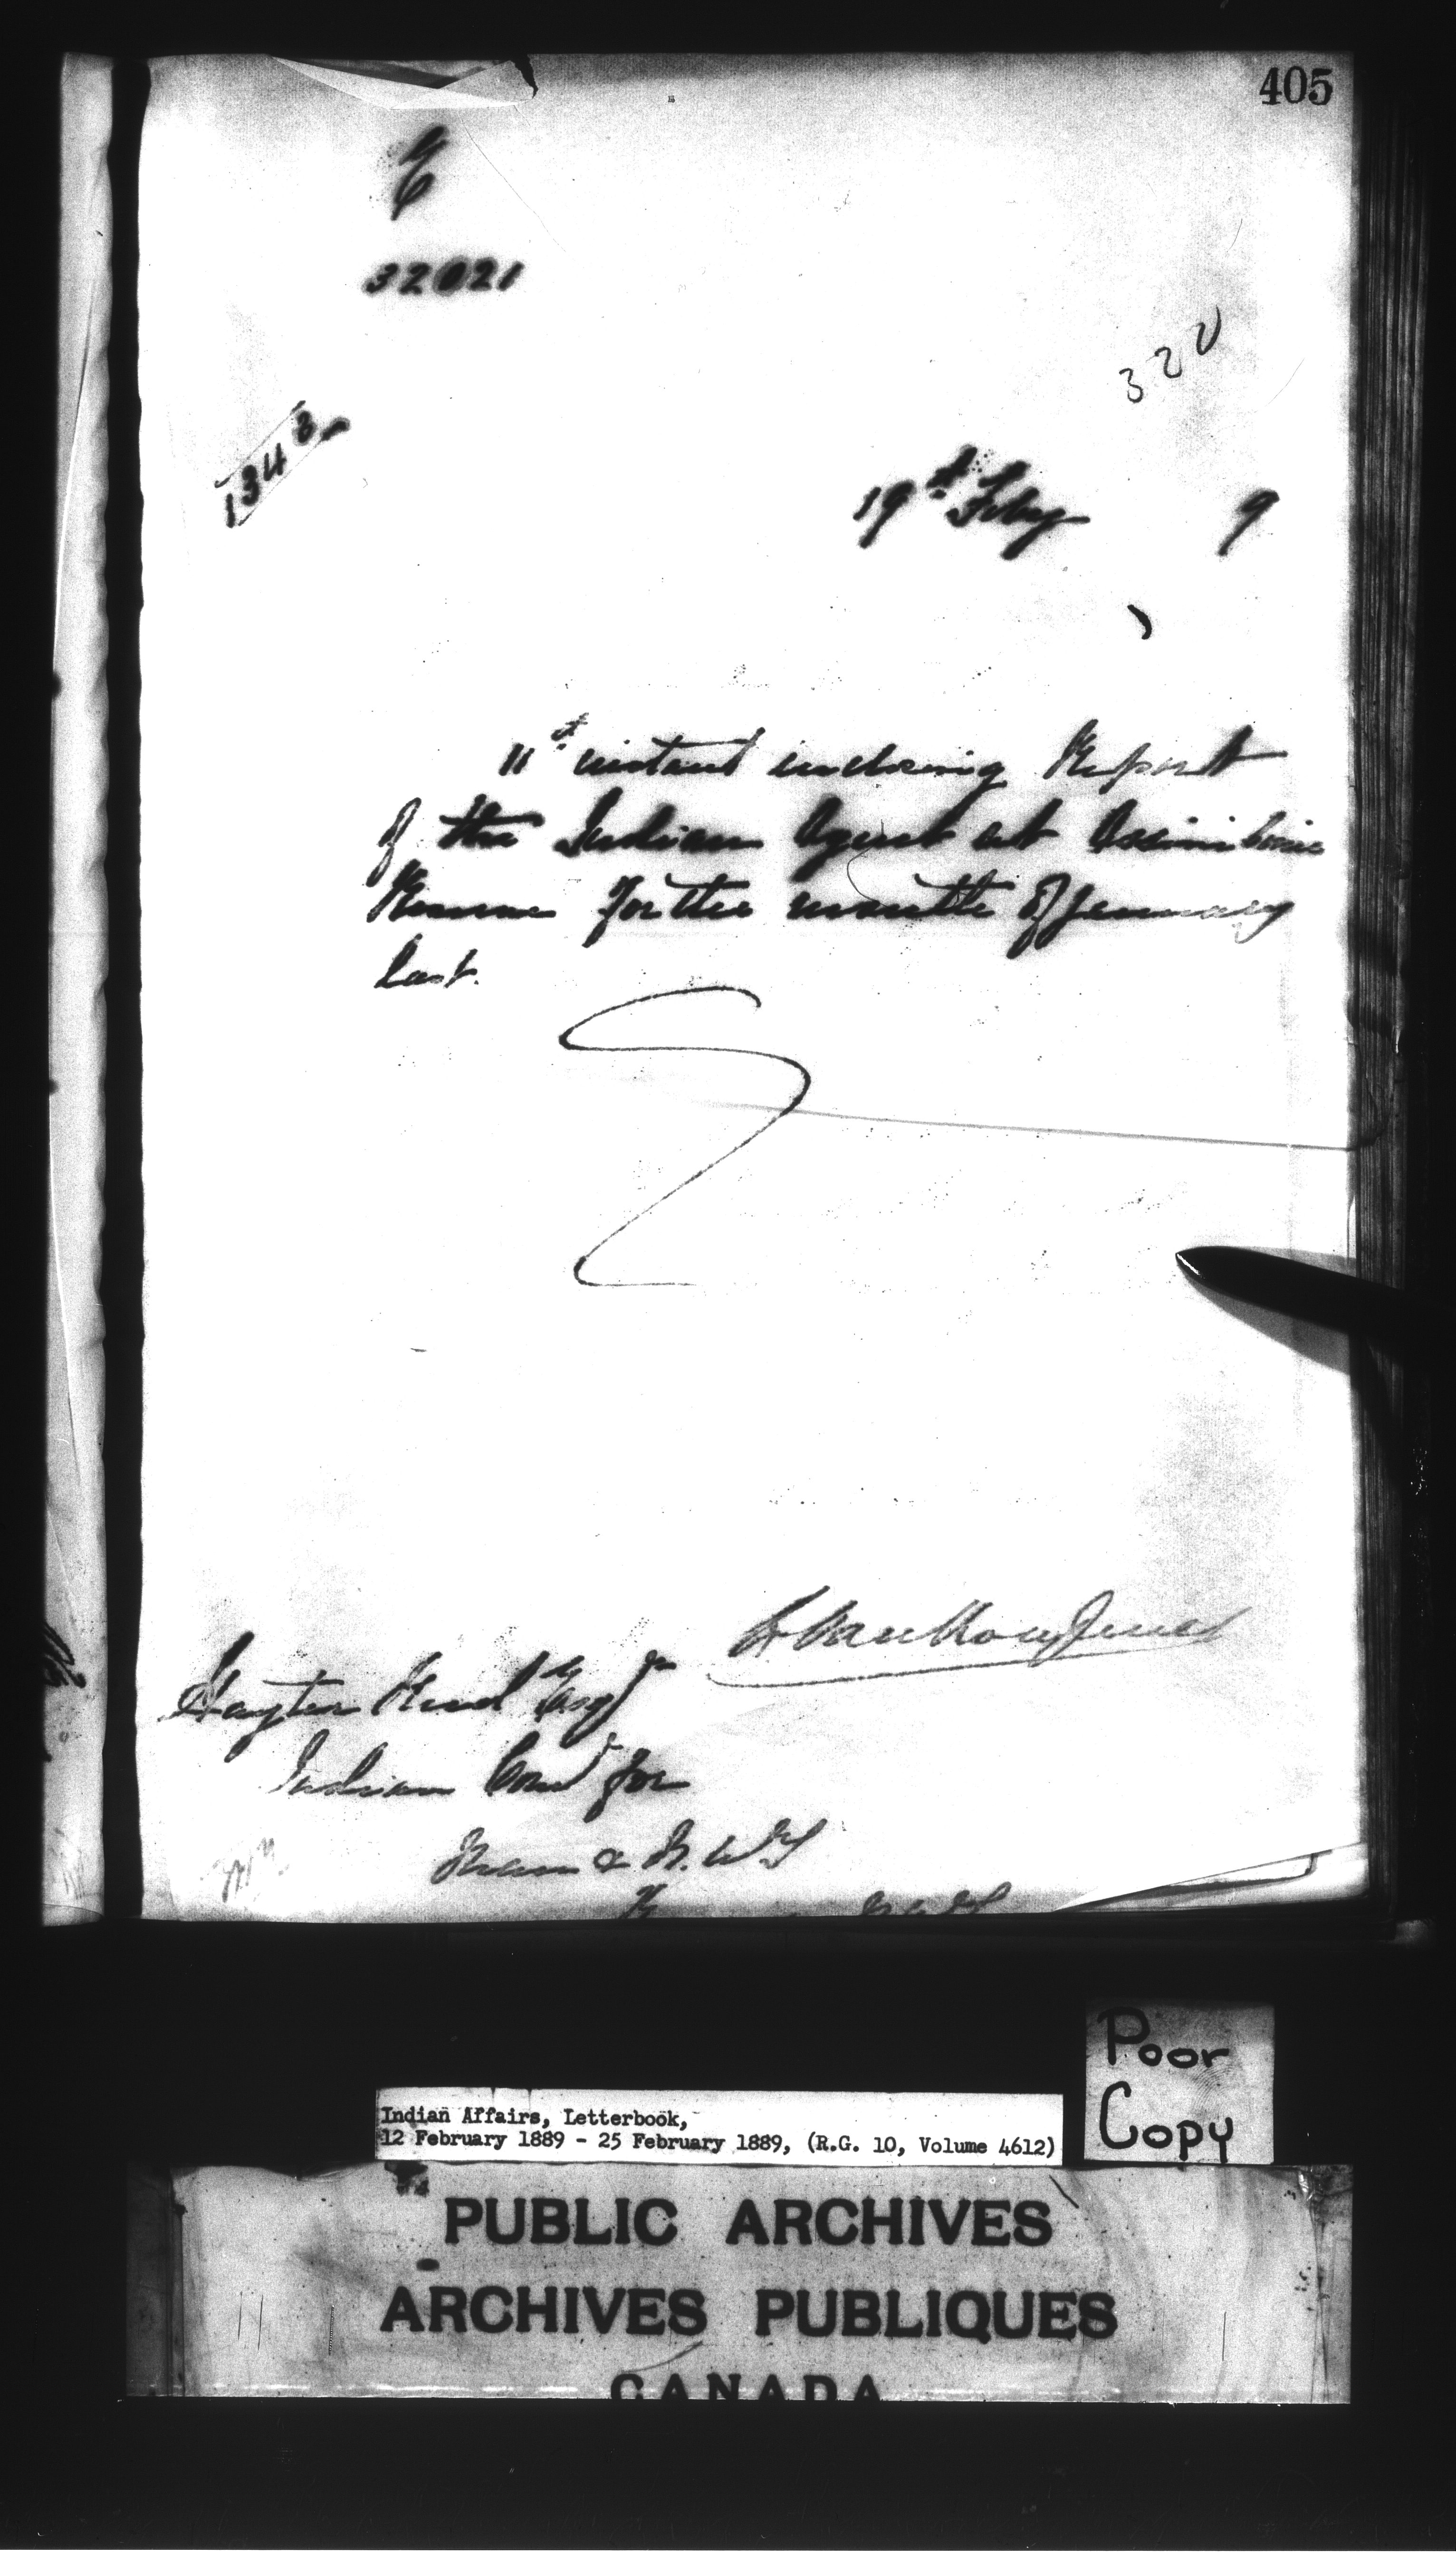 405
32021
320
1343
19th Feby 9
11th instant inclosing Report
of the Indian Agent at Assiniboine
Reserve for the month of January
last.
L. VanKoughnet
Hayter Reed Esqr
Indian Comr for
Man & N.W.T
N.W.T
Poor
Copy
Indian Affairs, Letterbook,
12 February 1889 - 25 February 1889, (R.G. 10, Volume 4612)
PUBLIC ARCHIVES
ARCHIVES PUBLIQUES
CANADA